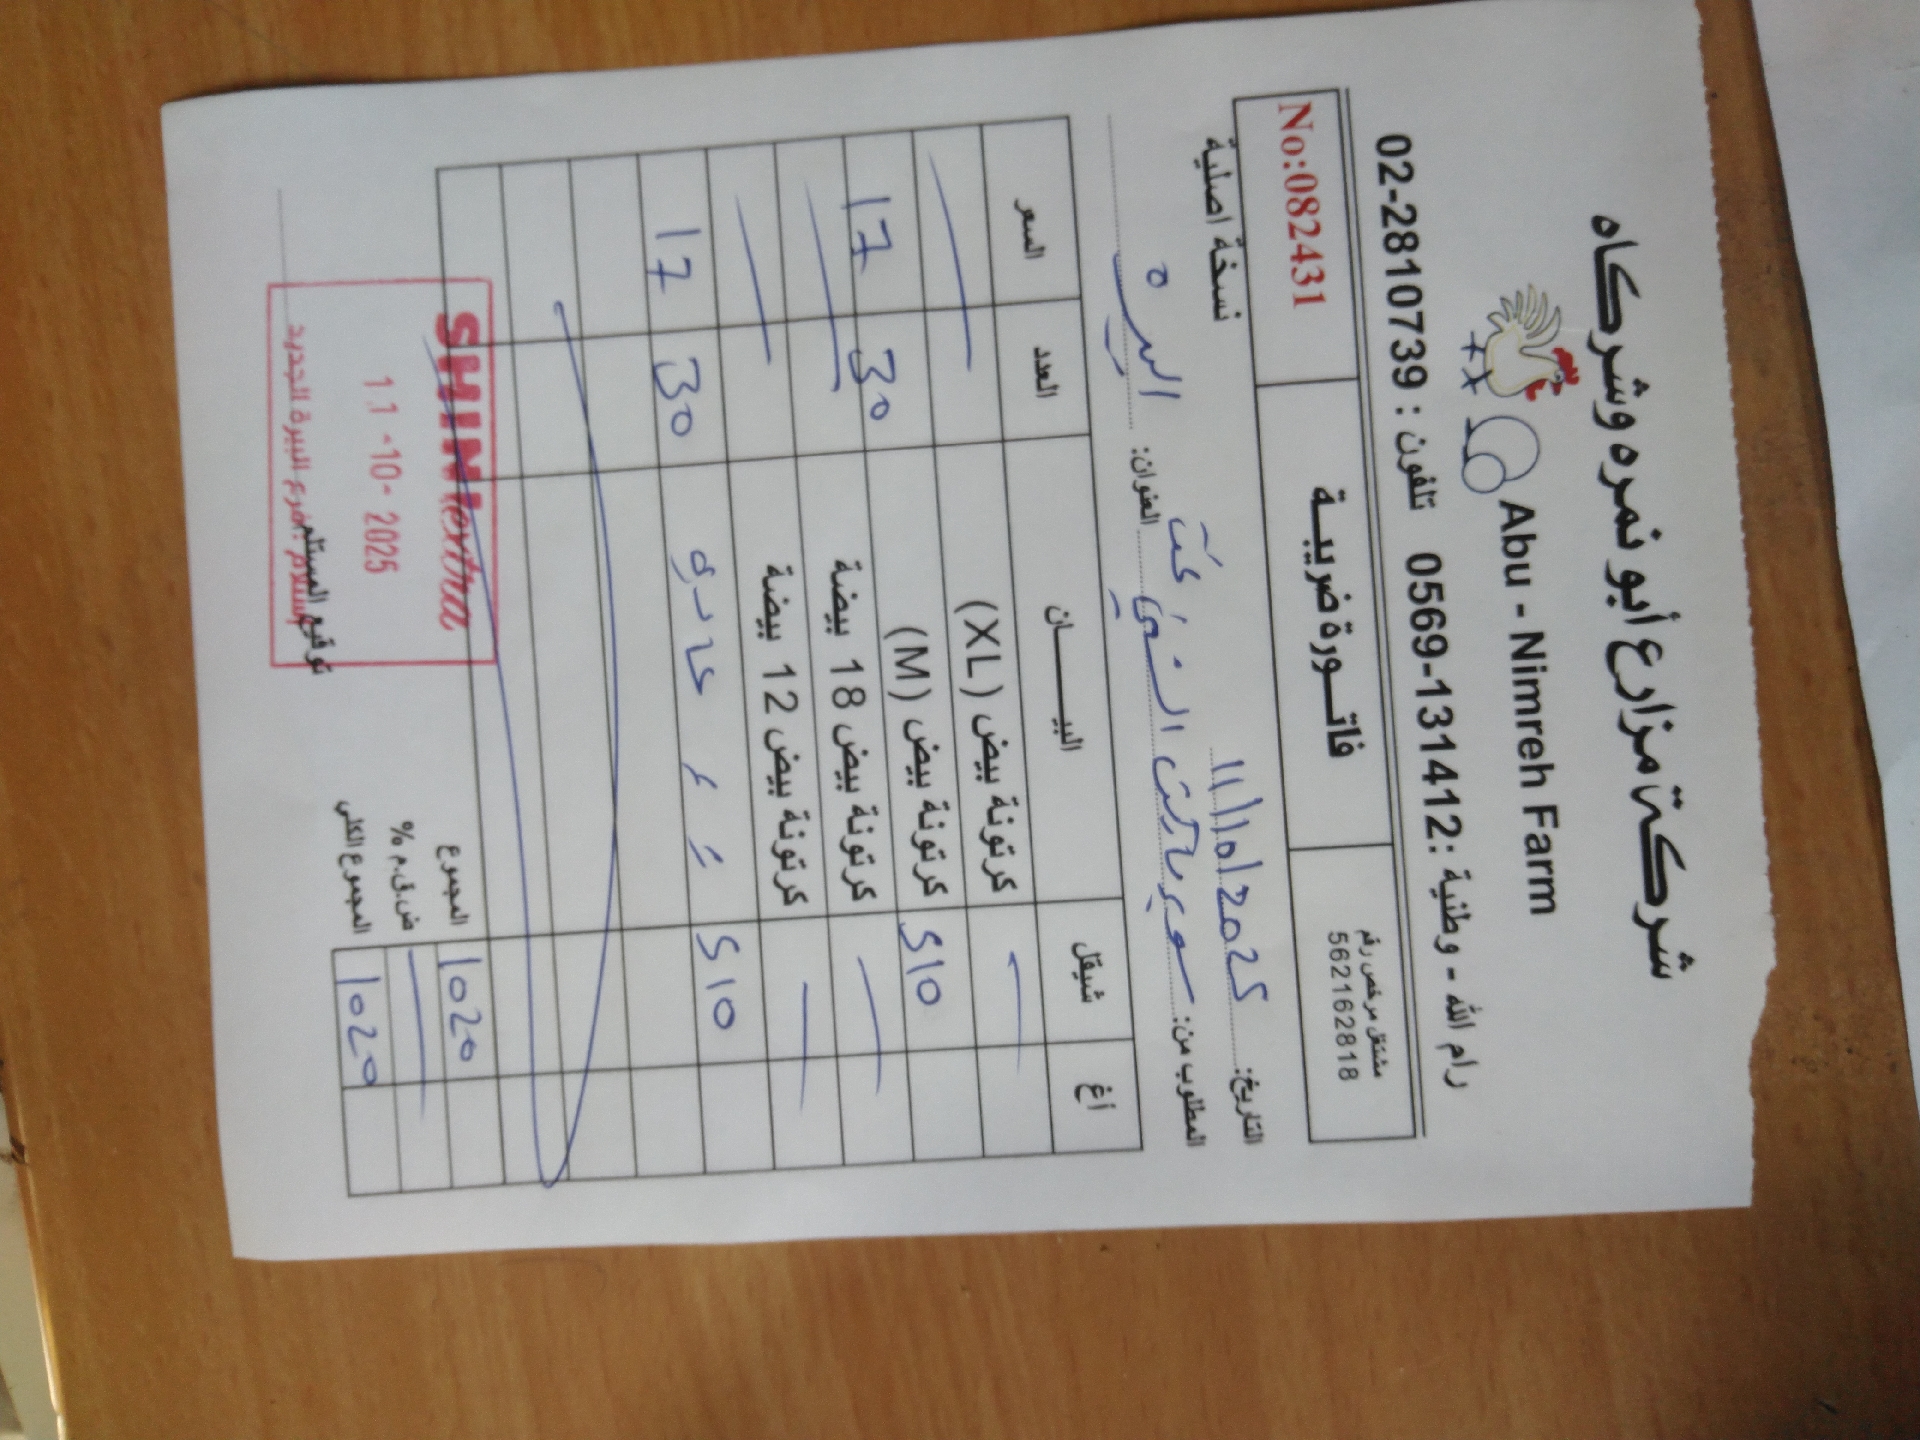 شركة مزارع أبو نمره وشركاه
Abu - Nimreh Farm
رام الله - وطنية : 0569-131412 تلفون : 02-2810739
مشتغل مرخص رقم
562162818
فاتـــورة ضريبـــة
No:082431
التاريخ: 11/10/2025
نسخة اصلية
المطلوب من: سوبر ماركت الشني
العنوان: البيره
أغ شيقل البيـــــان العدد السعر
كرتونة بيض (XL)
510 كرتونة بيض (M) 30 17
كرتونة بيض 18 بيضة
كرتونة بيض 12 بيضة
510 30 17
المجموع 1020
ض.ق.م %
المجموع الكلي 1020
توقيع المستلم
SHINI extra
11 -10- 2025
إستلام :فرع البيرة الجديد